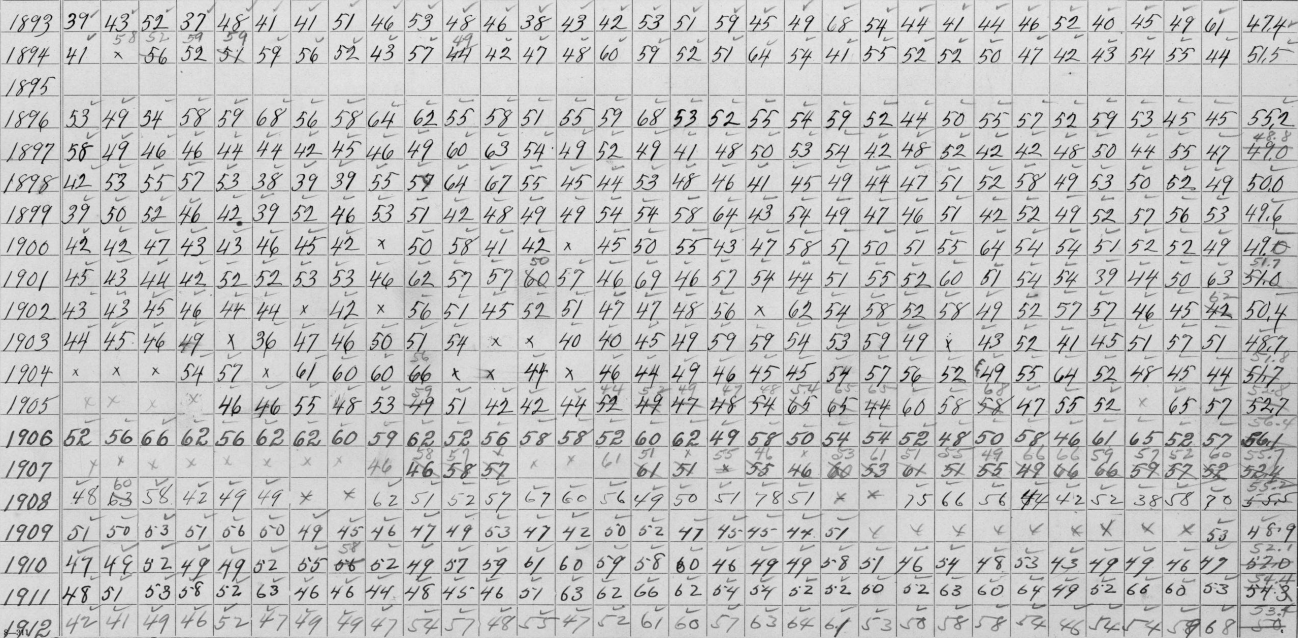 1893 39 43 52 37 48 41 41 51 46 53 48 46 38 43 42 53 51 59 45 49 68 54 44 41 44 46 52 40 45 49 61 47.4
58 52 59 59 49
1894 41 x 56 52 51 59 56 52 43 57 44 42 47 48 60 59 52 51 64 54 41 55 52 52 50 47 42 43 54 55 44 51.5
1895
1896 53 49 54 58 59 68 56 58 64 62 55 58 51 55 59 68 53 52 55 54 59 52 44 50 55 57 52 59 53 45 45 55.2
48.8
1897 58 49 46 46 44 44 42 45 46 49 60 63 54 49 52 49 41 48 50 53 54 42 48 52 42 42 48 50 44 55 47 49.0
1898 42 53 55 57 53 38 39 39 55 57 64 67 55 45 44 53 48 46 41 45 49 44 47 51 52 58 49 53 50 52 49 50.0
1899 39 50 52 46 42 39 52 46 53 51 42 48 49 49 54 54 58 64 43 54 49 47 46 51 42 52 49 52 57 56 53 49.6
1900 42 42 47 43 43 46 45 42 x 50 58 41 42 x 45 50 55 43 47 58 51 50 51 55 64 54 54 51 52 52 49 49.0
50 51.7
1901 45 43 44 42 52 52 53 53 46 62 57 57 60 57 46 69 46 57 54 44 51 55 52 60 51 54 54 39 44 50 63 51.0
62
1902 43 43 45 46 44 44 x 42 x 56 51 45 52 51 47 47 48 56 x 62 54 58 52 58 49 52 57 57 46 45 42 50.4
1903 44 45 46 49 x 36 47 46 50 51 54 x x 40 40 45 49 59 59 54 53 59 49 x 43 52 41 45 51 57 51 48.7
56 51.8
1904 x x x 54 57 x 61 60 60 66 x x 44 x 46 44 49 46 45 45 54 57 56 52 49 55 64 52 48 45 44 51.7
59 44 52 49 47 48 54 65 65 68
1905 x x x x 46 46 55 48 53 49 51 42 42 44 52 49 47 48 54 65 65 44 60 58 58 47 55 52 x 65 57 52.7
56.4
1906 52 56 66 62 56 62 62 60 59 62 52 56 58 58 52 60 62 49 58 50 54 54 52 48 50 58 46 61 65 52 57 56.1
58 57 x 61 51 x 55 46 x 53 61 51 55 49 66 66 59 57 52 60 55.7
1907 x x x x x x x x 46 46 58 57 x x 61 51 x 55 46 60 53 61 51 55 49 66 66 59 57 52
60 55.2
1908 48 63 58 42 49 49 x x 62 51 52 57 67 60 56 49 50 51 78 51 x x 75 66 56 44 42 52 38 58 70 55.5
1909 51 50 53 51 56 50 49 45 46 47 49 53 47 42 50 52 47 45 45 44 51 x x x x x x x x x 55 48.9
58 52.1
1910 47 49 52 49 49 52 55 56 52 49 57 59 61 60 59 58 60 46 49 49 58 51 46 54 48 53 43 49 49 46 47 52.0
54.4
1911 48 51 53 58 52 63 46 46 44 48 45 46 51 63 62 66 62 54 54 52 52 60 52 63 60 64 49 52 66 60 53 54.3
53.4
1912 42 41 49 46 52 47 49 49 47 54 57 48 55 47 52 61 60 57 63 64 61 53 50 58 58 54 46 54 54 59 68